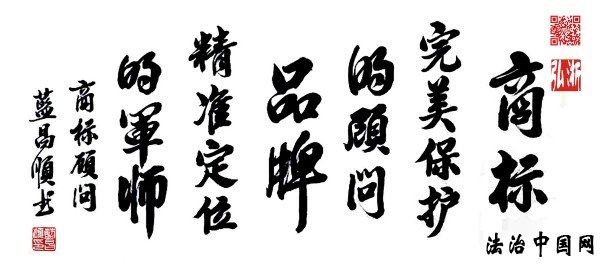 商标
完美保护
的顾问
品牌
精准定位
的軍师
商标顾问
藍昌順书
法治中国网